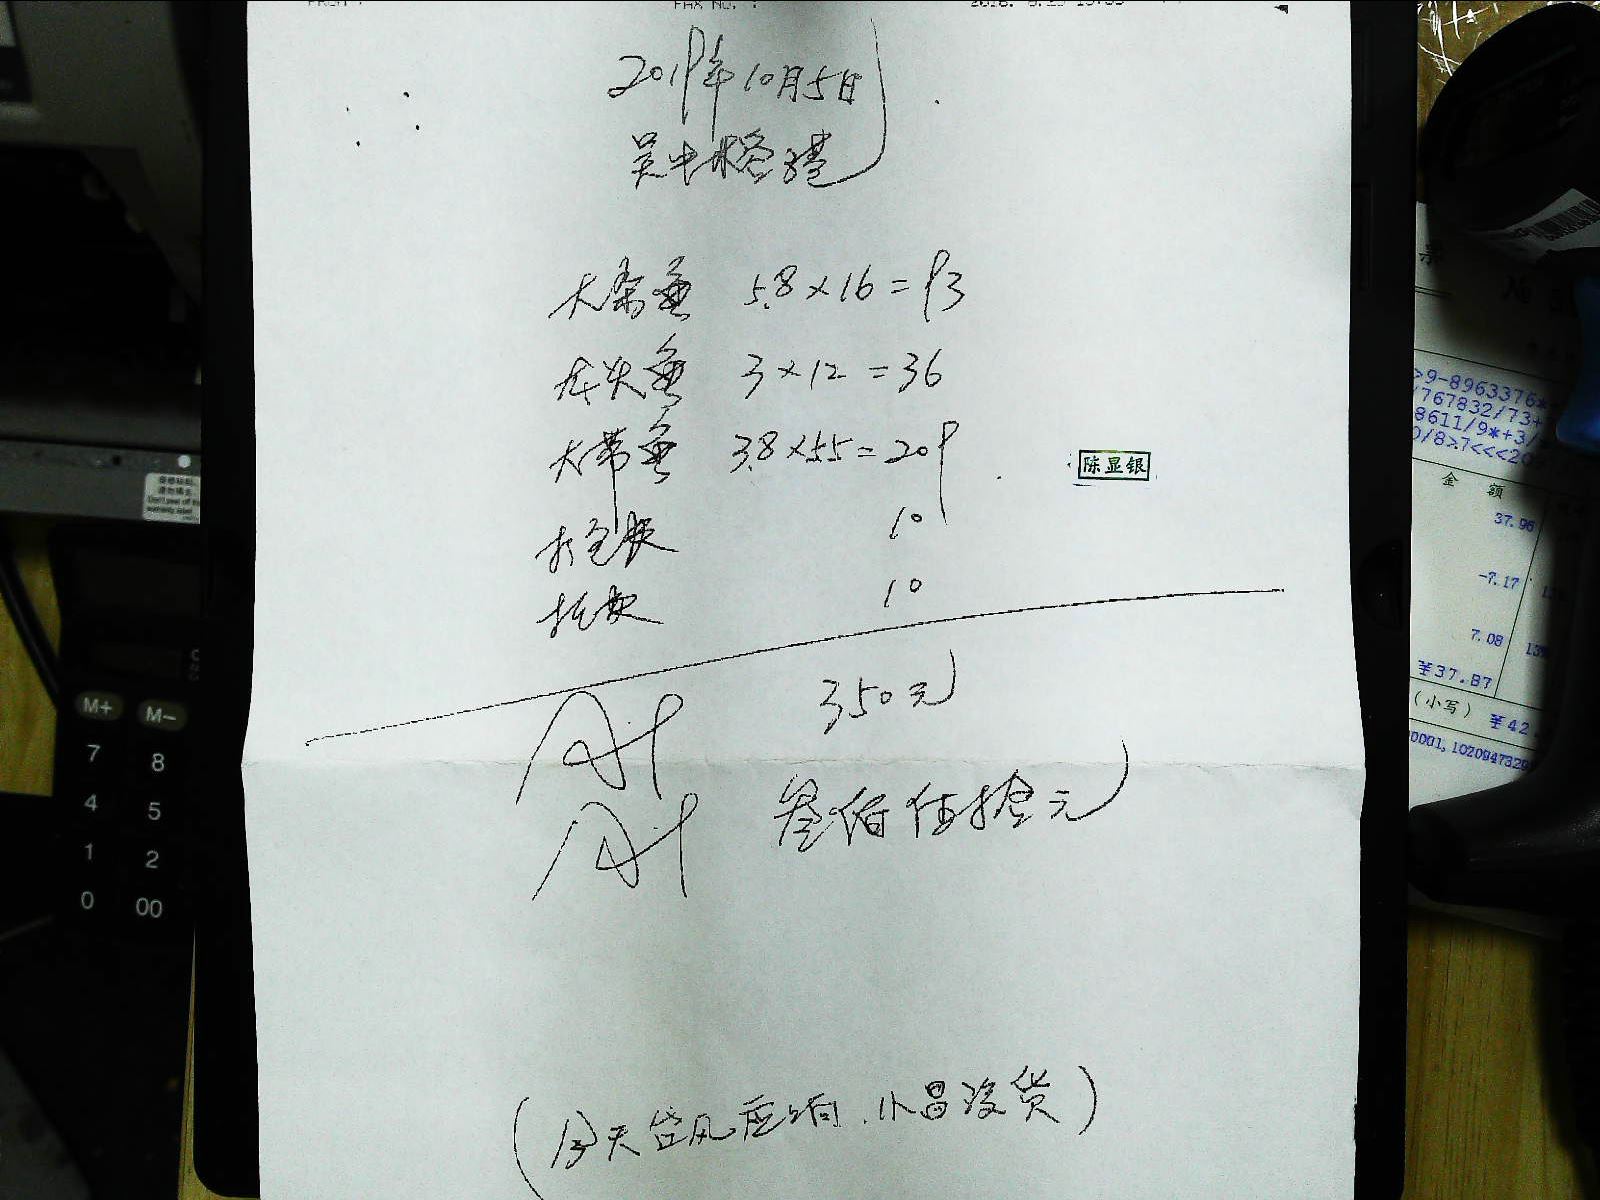 FAX NO. :
2019年10月5日
大鱼 5.8×16=93
龙头鱼 3×12=36
大带鱼 3.8×55=209
陈显银
打包费 10
托运 10
350元
叁佰伍拾元
(今天台风应响.小昌没货)
M+ M-
7 8
4 5
1 2
0 00
>9-8963376*
/767832/73+
8611/9*+3/
0/8>7<<<20
金 额
37.96
-7.17
7.08
¥37.87
(小写) ¥42